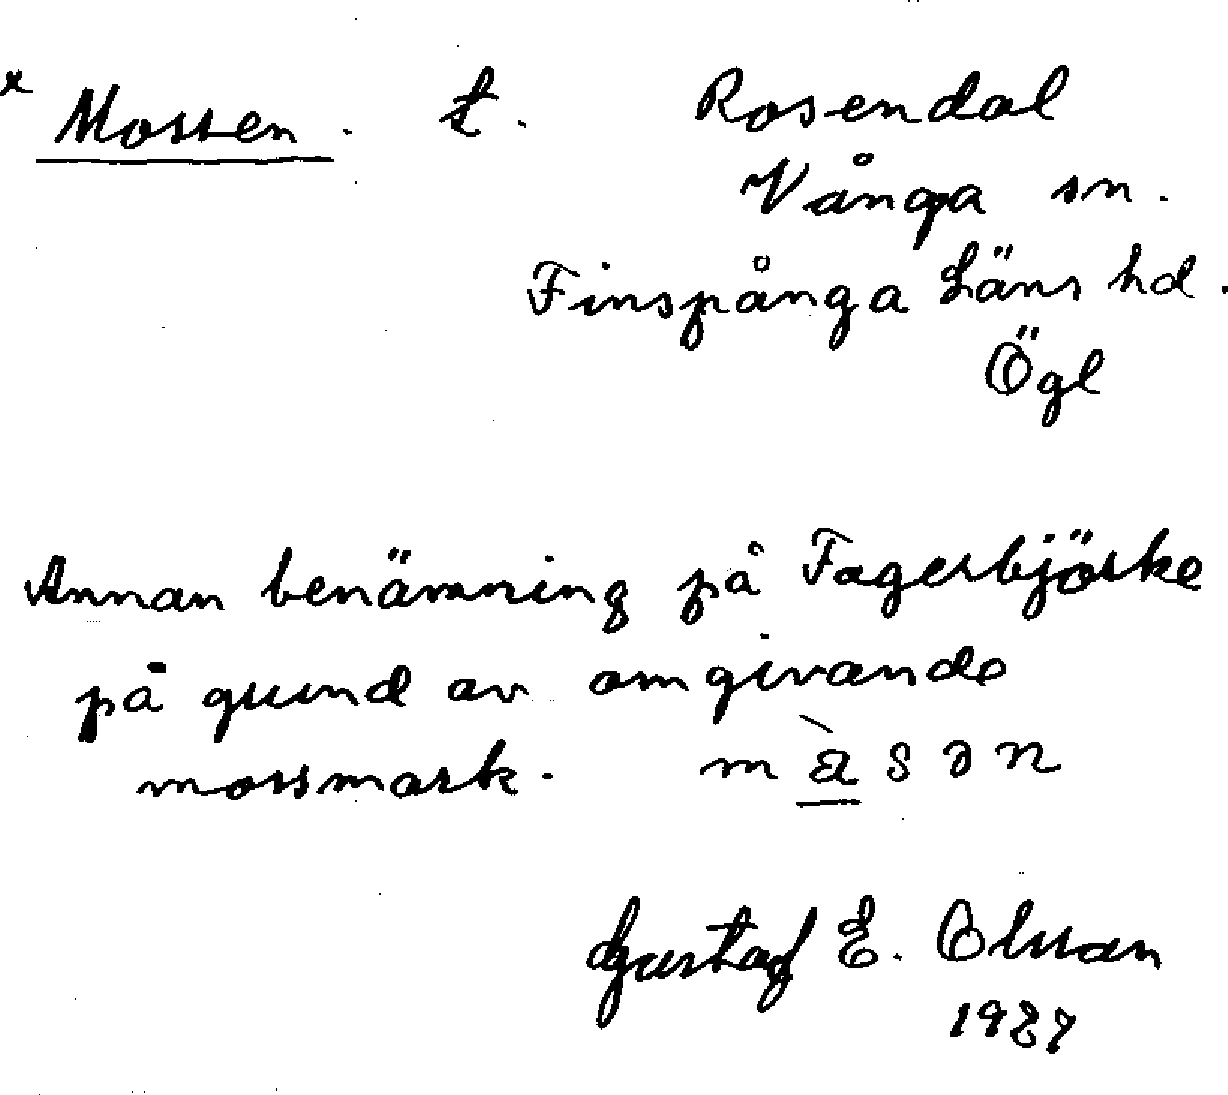 x Mossen. t. Rosendal
Vånga sn.
Finspånga Läns hd.
Ögl
Annan benämning på Fagerbjörke
på grund av omgivande
mossmark. m à̱ s ə n
Gustaf E. Olsson
1927